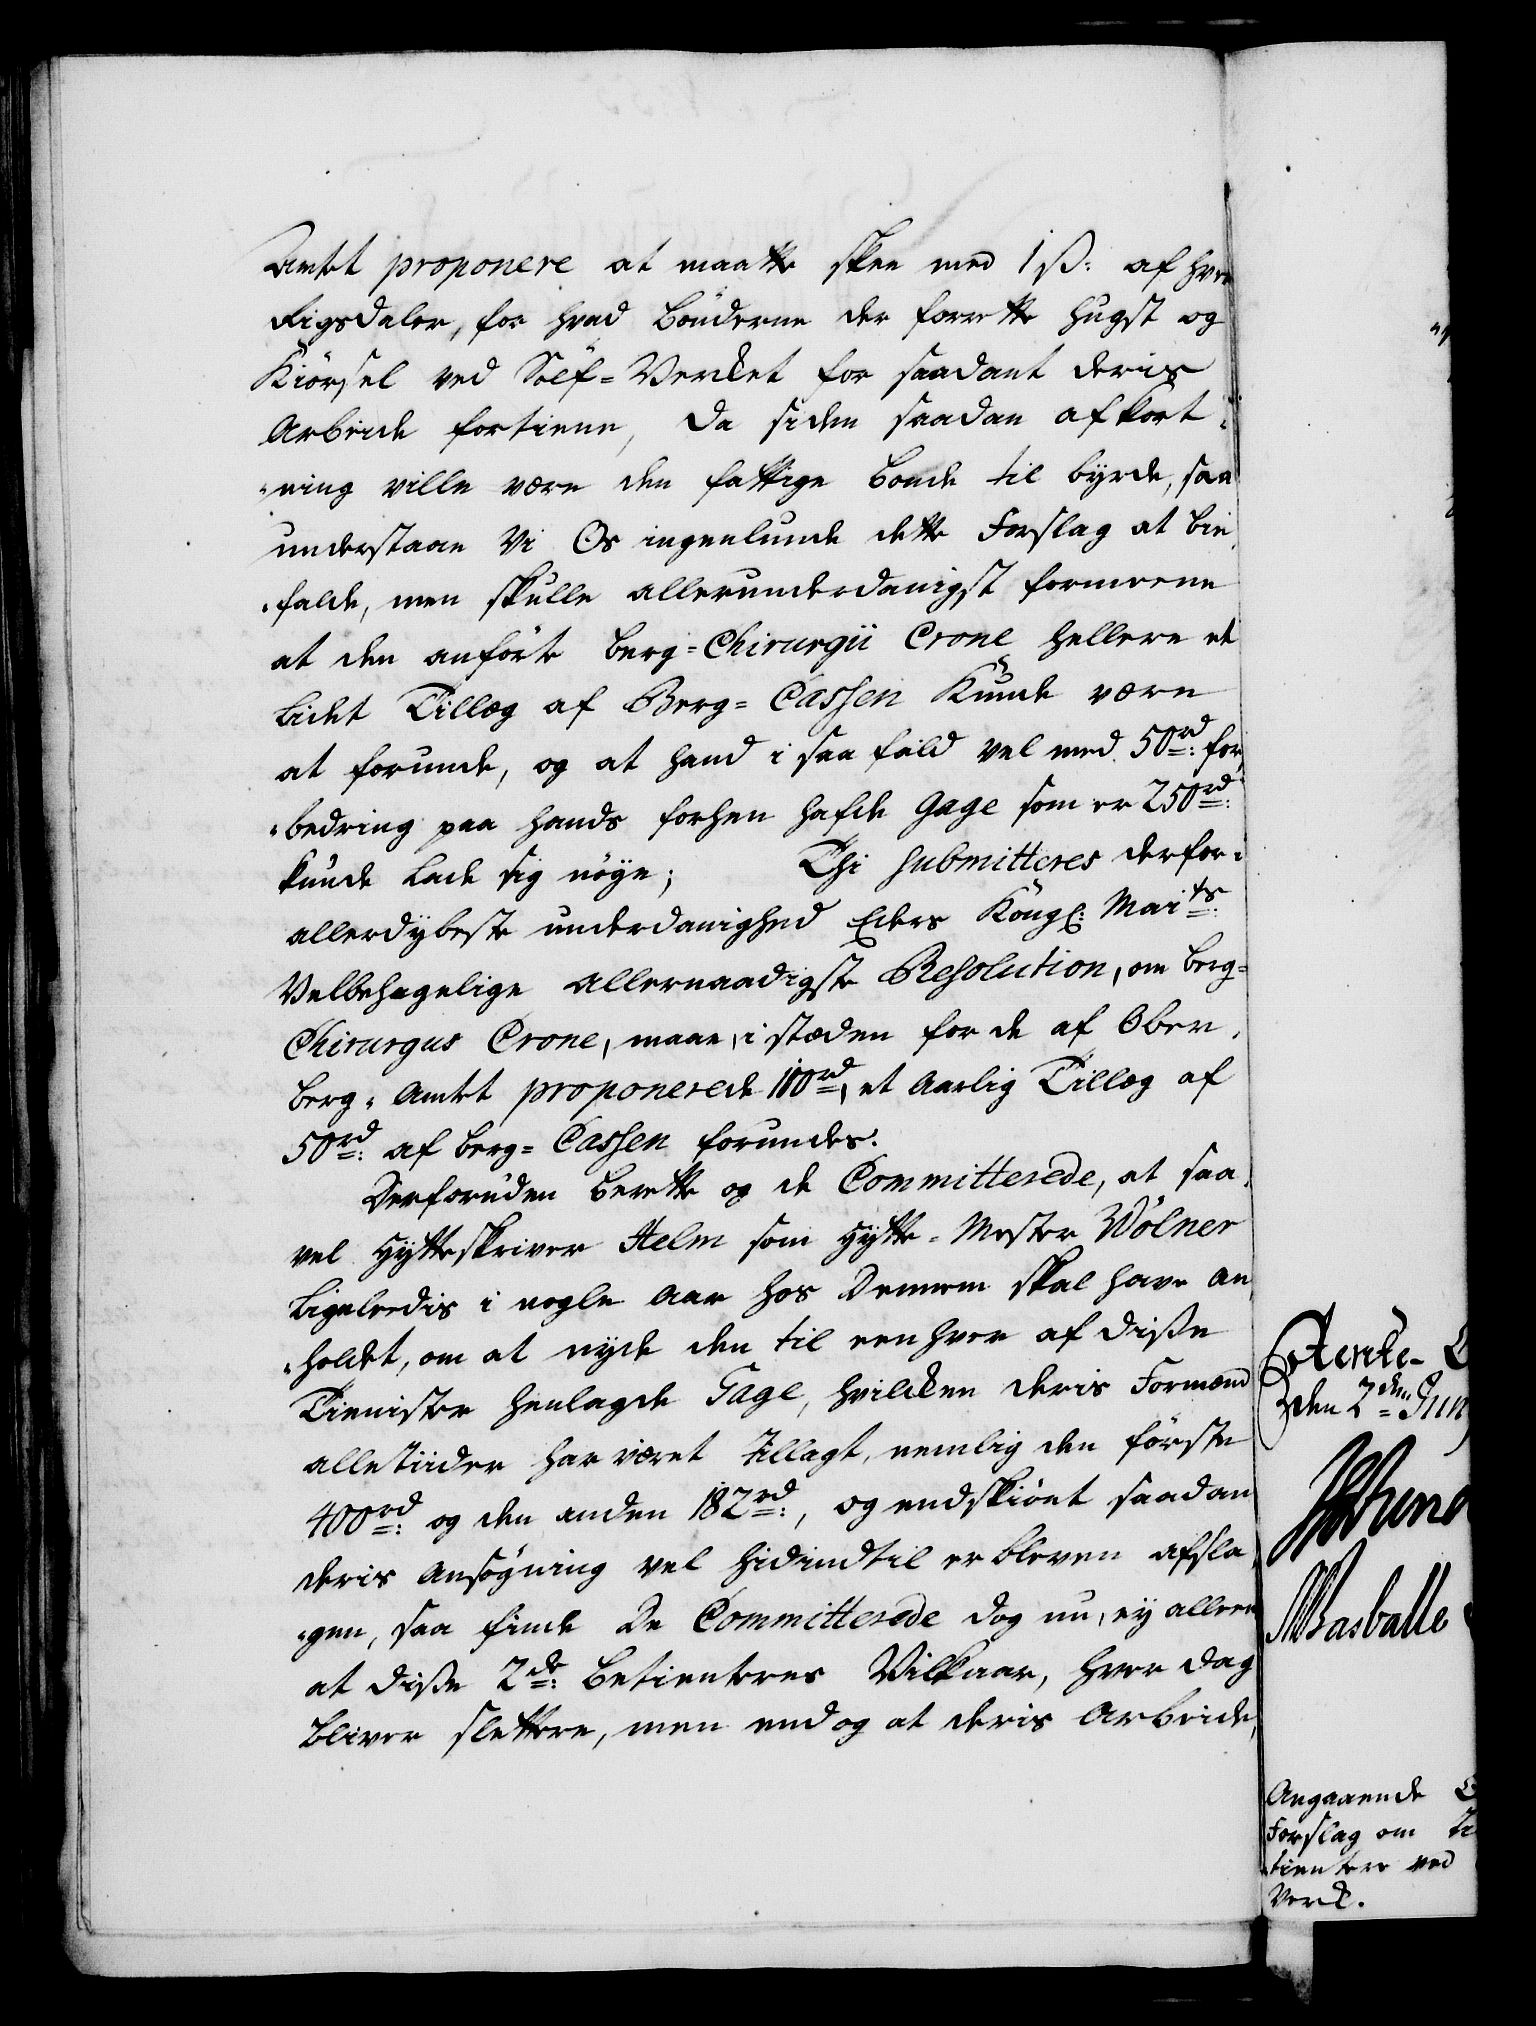 Amtet proponere at maatte skee med 1 ß: af hver
Rigsdaler, for hvad Bönderne der forrette Hugst og
Kiörsel ved Sölf-Verket for saadant deris
Arbeide fortiene, Da siden saadan afkort-
ning ville være den fattige Bonde til byrde, saa
understaae Vi Os ingenlunde dette Forslag at bie-
falde, men skulle allerunderdanigst formeene
at den anförte Berg-Chirurgii Crone hellere et
Lidet Tillæg af Berg-Cassen Kunde være
at forunde, og at hand i saa fald vel med 50 rd: for-
bedring paa hands forhen hafde Gage som er 250 rd:
kunde lade sig nöye; Thi submitteres derfor i
allerdybeste underdanighed Eders Kongl: Maits
Velbehagelige Allernaadigste Resolution, om Berg-
Chirurgus Crone, maae, i stæden for de af Ober-
Berg-Amtet proponerede 100 rd, et Aarlig Tillæg af
50 rd: af Berg-Cassen forundes.
Derforuden berette og de Committerede, at saa-
vel Hytteskriver Helm som Hytte-Mester Wölner
Ligeledis i nogle Aar hos Dennem skal have an-
holdet, om at nyde den til een hver af diße
Tienister henlagde Gage, hvilcken deris Formænd
alletiider har været tillagt, nemlig den förste
400 rd: og den anden 182 rd:, og endskiönt saadan
deris Ansögning vel hidindtil er bleven afsla-
gen, saa finde De Committerede dog nu, ey alleene
at diße 2de: Betienteres Vilkaar, hver dag
bliver slettere, men endog at deris Arbeide,
den 2den Jun
Angaaende
Forslag om
tientere ved
Verk.